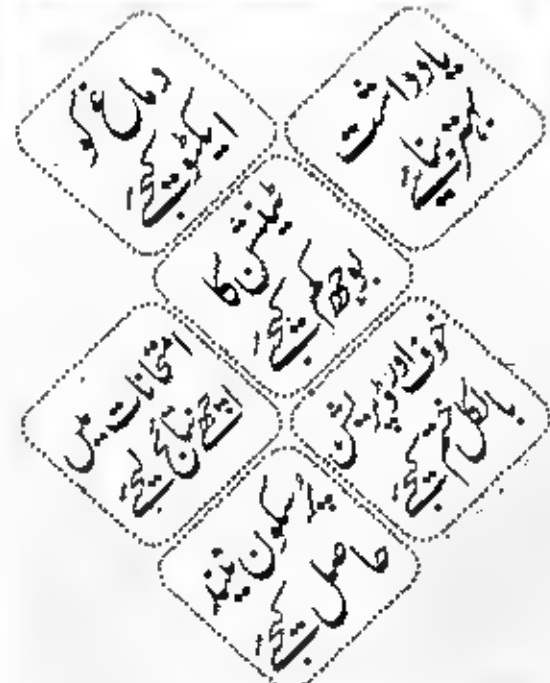 یادداشت
بہتر بنایئے
دماغ کو
ایکٹو کیجئے
ٹینشن کا
بوجھ کم کیجئے
خوف اور ڈپریشن
بالکل ختم کیجئے
امتحانات میں
اچھے نتائج لیجئے
پُرسکون نیند
حاصل کیجئے